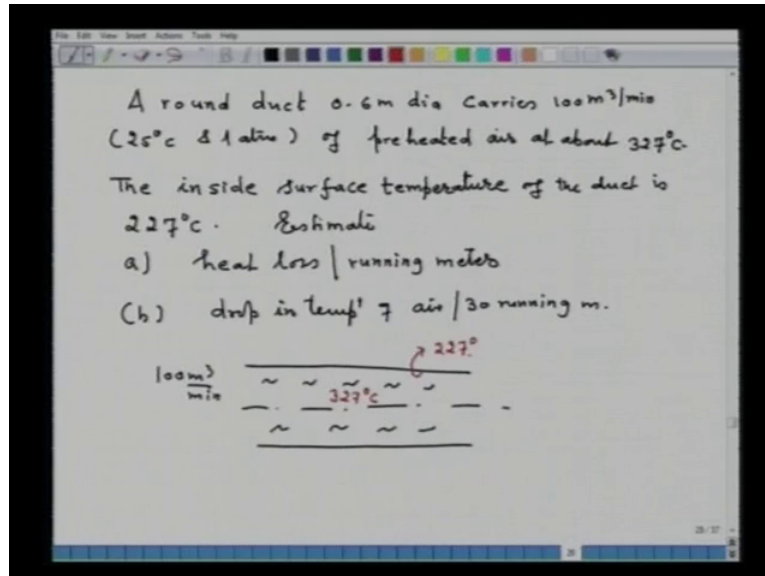 File Edit View Insert Actions Tools Help
A round duct 0.6m dia carries 100m³/min
(25°C & 1 atm) of preheated air at about 327°C.
The inside surface temperature of the duct is
227°C. Estimate
a) heat loss / running meter
(b) drop in temp' of air / 30 running m.
227°
100m³
min
327°C